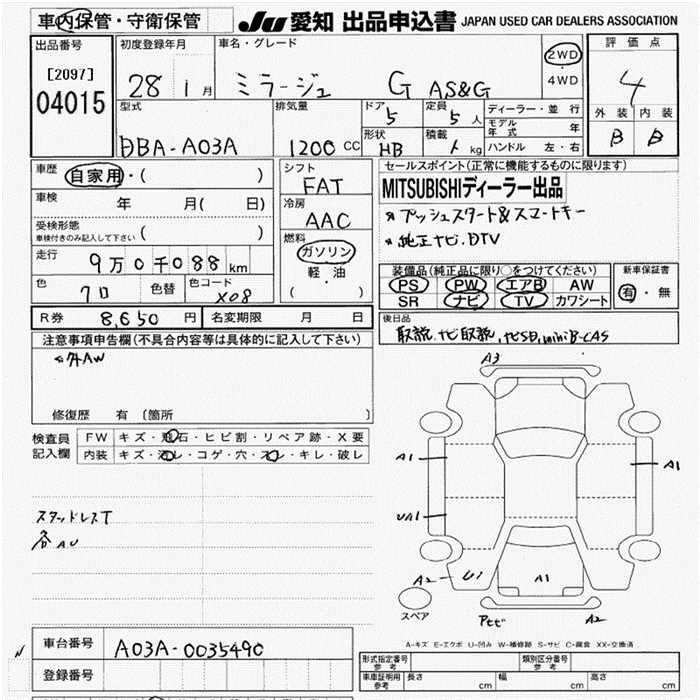 車内保管・守衛保管
JU 愛知 出品申込書 JAPAN USED CAR DEALERS ASSOCIATION
出品番号
[2097]
04015
初度登録年月
28 1月
車名・グレード
ミラージュ G AS&G
2WD
4WD
評価点
4
外装 内装
B B
型式
DBA-A03A
排気量
1200 CC
ドア 5
形状 HB
定員 5人
積載 kg
ディーラー・並行
モデル年式 年
ハンドル 左・右
車歴 自家用・( )
車検 年 月( 日)
受検形態
車検付きのみ記入して下さい ( )
走行 9万0千088km
色 クロ 色替 色コード X08
シフト
FAT
冷房
AAC
燃料
ガソリン
軽・油
( )
セールスポイント(正常に機能するものに限ります)
MITSUBISHIディーラー出品
*プッシュスタート&スマートキー
*純正ナビ.DTV
装備品(純正品に限り○をつけてください)
PS PW エアB AW
SR ナビ TV カワシート
新車保証書
有・無
R券 8,650円 名変期限 月 日
後日品
取説.ナビ取説,ナビSD,miniB-CAS
注意事項申告欄(不具合内容等は具体的に記入して下さい)
*外AW
修復歴 有 〔箇所 〕
検査員記入欄
FW キズ・飛石・ヒビ割・リペア跡・X要
内装 キズ・汚レ・コゲ・穴・スレ・キレ・破レ
スタッドレスT
各AU
A3
A1
A1
UA1
A2
U1
A1
A2
スペア
A-キズ E-エクボ U-凹み W-補修跡 S-サビ C-腐食 XX-交換済
車台番号 A03A-0035490
登録番号
形式指定番号 参考 類別区分番号 参考
車庫証明用 参考 長さ cm 幅 cm 高さ cm